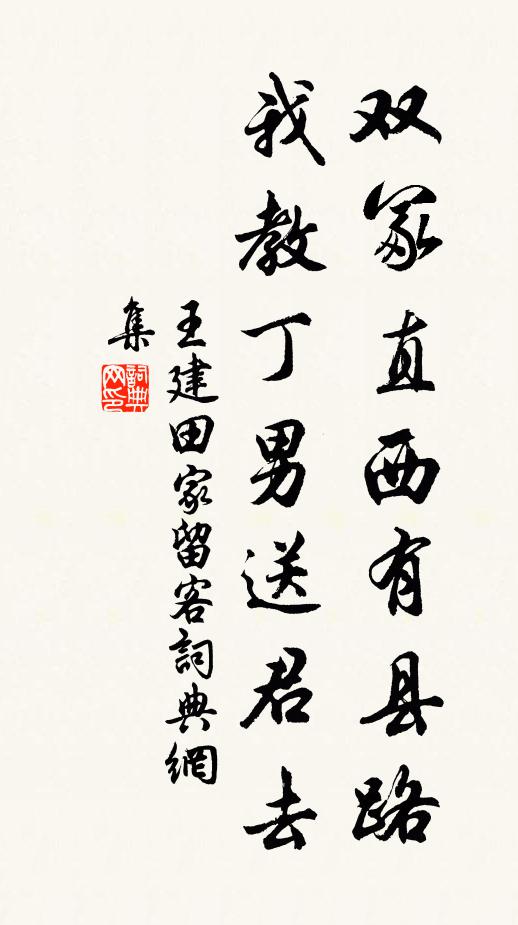 双冢直西有县路
我教丁男送君去
王建田家留客詞典網
集
詞典网印